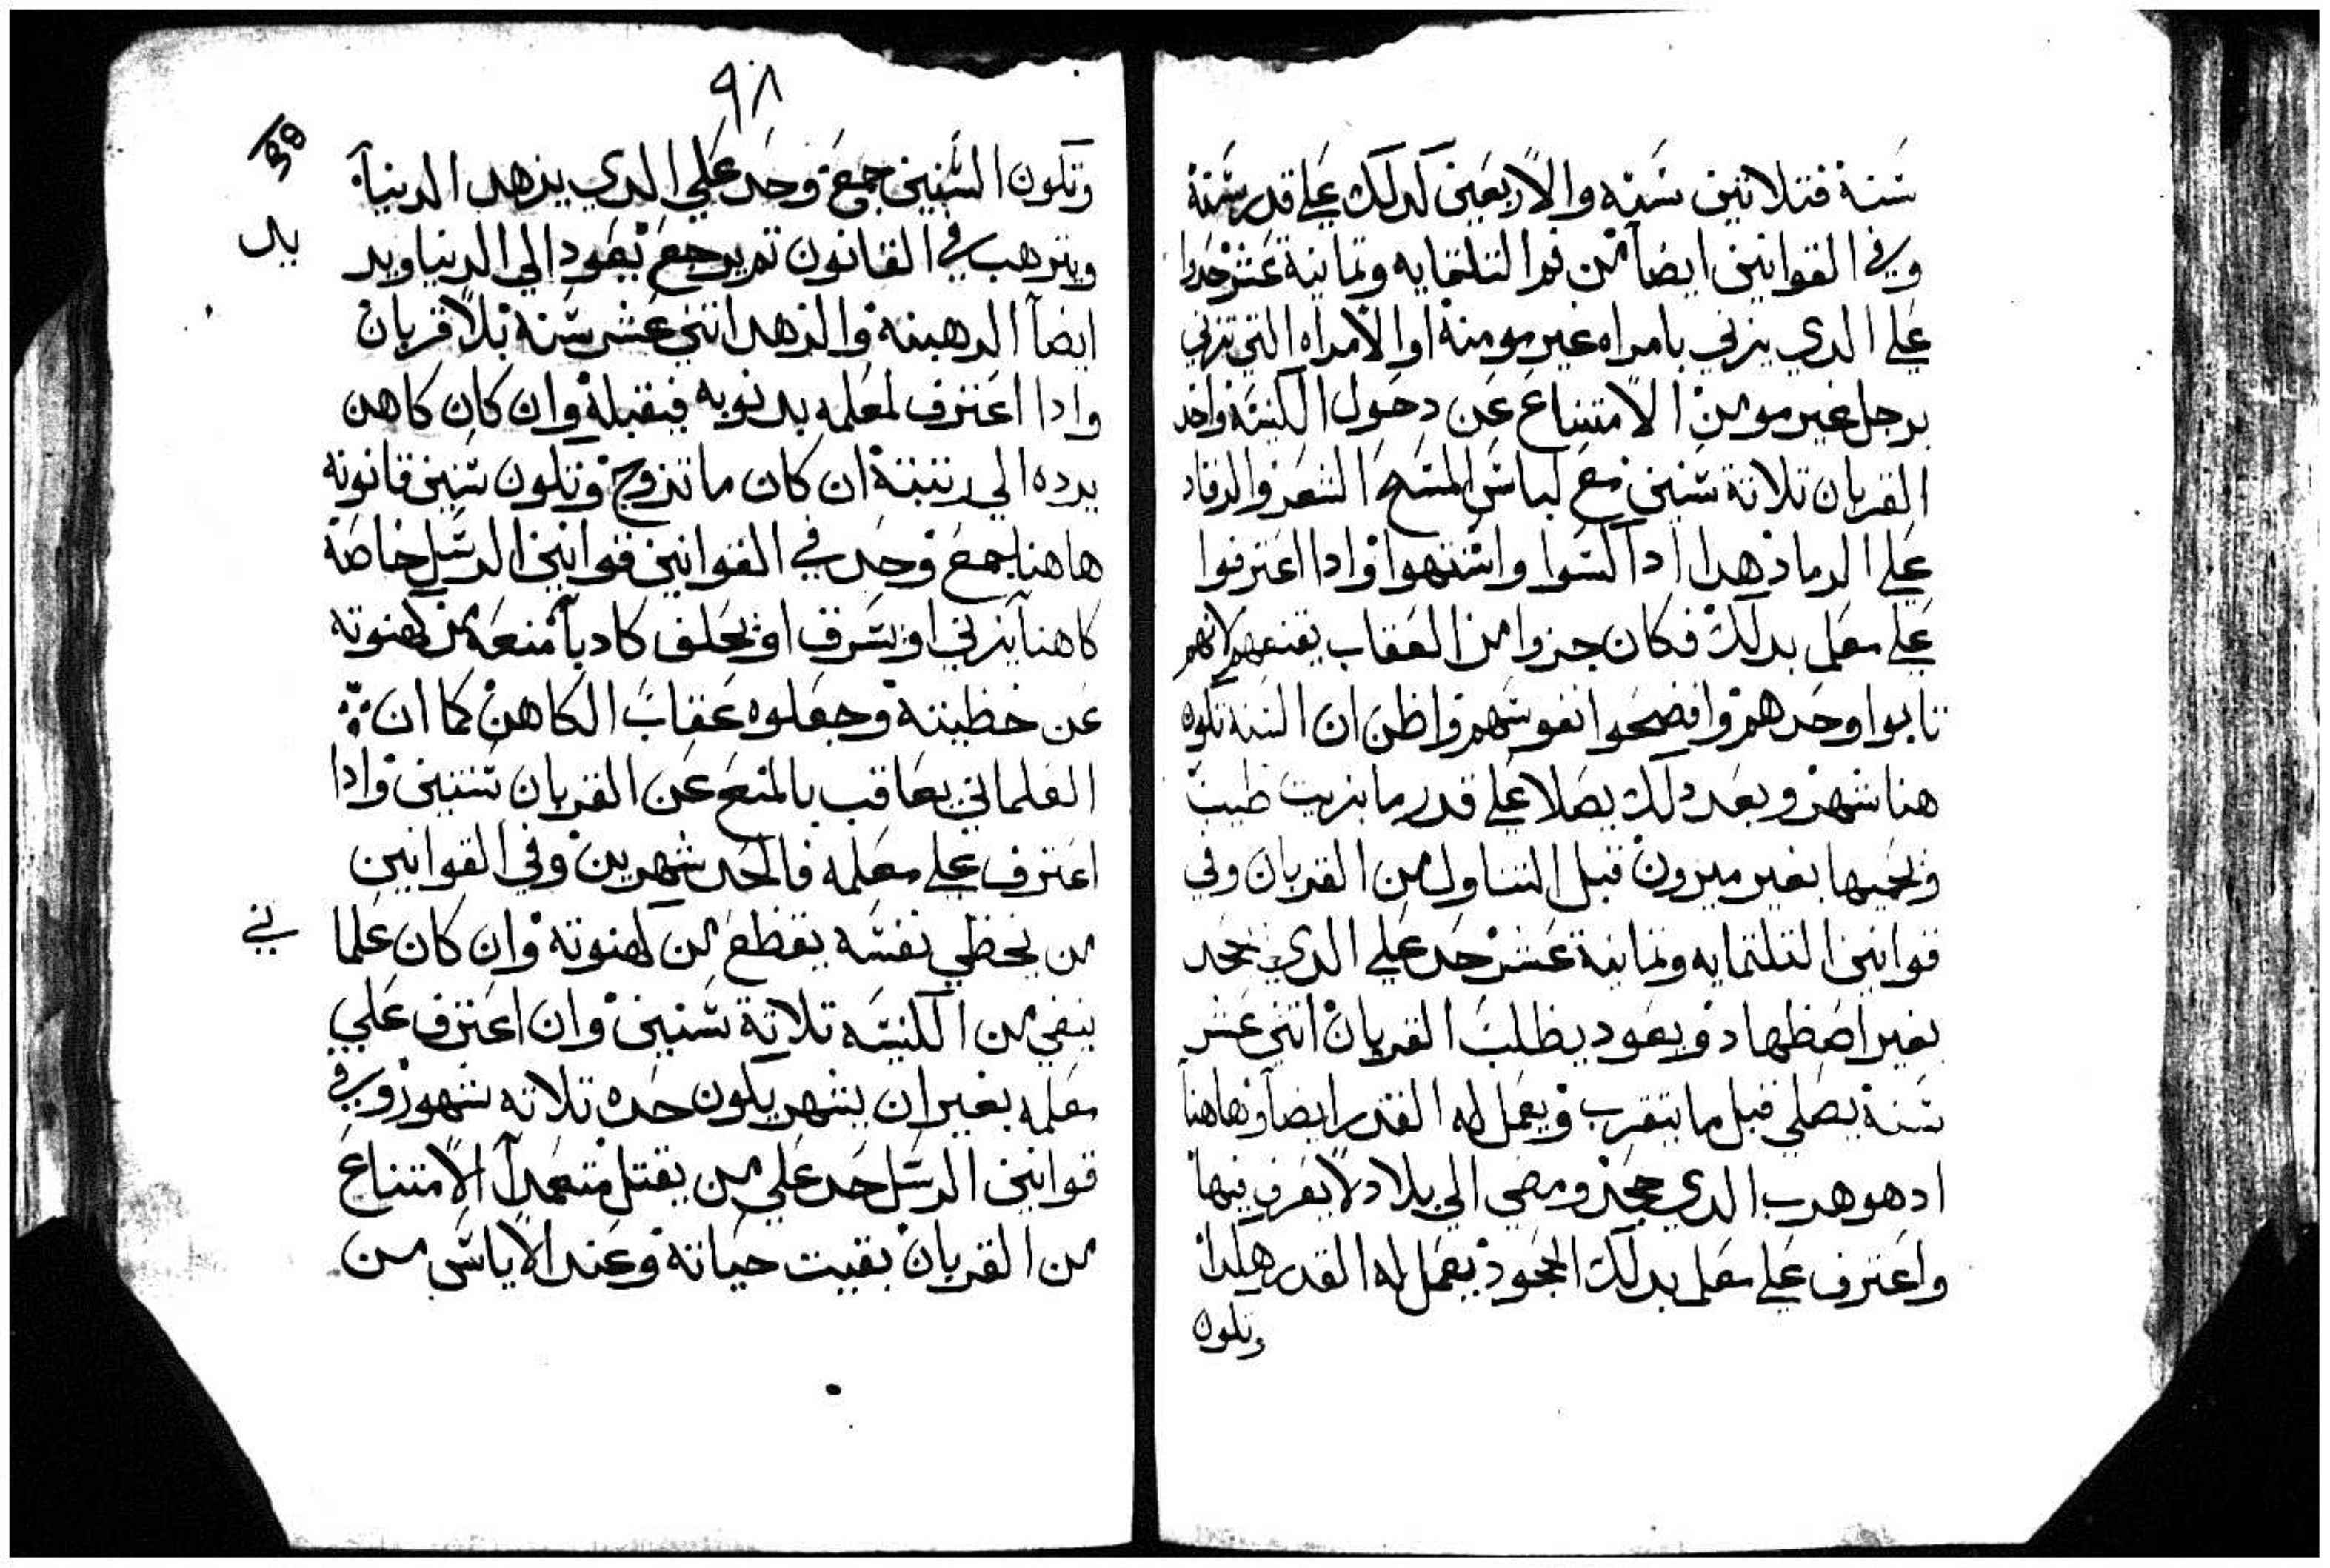 سنة فتلاتين سنه والاربعين كدلك علي قدر سنة
وفي القوانين ايضاً من قرا التلتمايه وتمانية عشر حدوا
علي الدي يزني بامراه غير مومنة او الامراه التي تزني
برجل غير مومن الامتناع عن دخول الكنيسه واخد
القربان تلاتة سنين مع لباس المسح الشعر والرقاد
علي الرماد هدا ادا السوا واشتهوا وادا اعترفوا
علي معلم بدلك فكان جزوا من العقاب يقنعهم لانهم
تابوا وحدهم وافضحوا نفوسهم واظن ان السنه تكون
هنا شهر وبعد دلك يصلا علي قدر ما بزيت طيب
ويحميها بغير ميرون قبل التناول من القربان وفي
قوانين التلتمايه وتمانية عشر حد علي الدي يجحد
بغير اضظهاد ويعود يظلب القربان اتني عشر
سنة يصلي قبل ما يتقرب ويعمل له القدر ايضاً وهاهنا
ادهو هرب الدي جحد ومضي الي بلاد لا يعرف فيها
واعترف علي معلم بدلك الجحود يعمل له القدر هكدا
وتكون
٩٨
98
وتكون السنين جمع وحد علي الدي يزهد الدنيا
ويترهب في القانون تم يرجع يعود الي الدنيا ويد
يل
ايضاً الرهبنة والزهد اتني عشر سنة بلا قربان
وادا اعترف لمعلمه بدنوبه فيقبلة وان كان كاهن
يرده الي رتبتة ان كان ما تزوج وتكون سنين قانونه
هاهنا جمع وحد في القوانين قوانين الرسل خاصة
كاهنا يزني او يسرق او يحلف كادباً منعه من كهنوته
عن خظيتة وجعلوه عقاب الكاهن كما ان
العلماني يعاقب بالمنع عن القربان سنتين وادا
اعترف علي معلمه فالحد شهرين وفي القوانين
من يخظي نفسه يقطع من كهنوته وان كان علما
ني
ينفي من الكنيسه تلاتة سنين وان اعترف علي
معلمه بغير ان يشهر يكون حده تلاته شهور وفي
قوانين الرسل حد علي من يقتل متعمداً الامتناع
من القربان بقيت حياتة وعند الاياس من